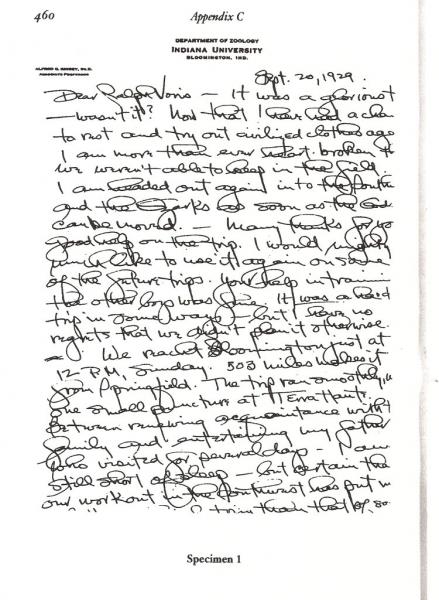 460
Appendix C
DEPARTMENT OF ZOOLOGY
INDIANA UNIVERSITY
BLOOMINGTON, IND.
ALFRED C. KINSEY, SC.D.
ASSOCIATE PROFESSOR
Sept. 20, 1929.
Dear Ralph Voris — It was a glorious t
— wasn't it? Now that I have had a cha
to rest and try out civilized clothes aga
I am more than ever heart broken t
we weren't able to keep in the field
I am headed out again into the South
and the Ozarks as soon as the
can be moved. — Many thanks for yo
good help on the trip. I would might
much like to use it again on so
of the future trips. Your help in trainin
the other boys was fine. It was a hard
trip in some ways — but I have no
regrets that we didn't plan it otherwise.
— We reached Bloomington just at
12 P.M. Sunday. 503 miles makes it
from Springfield. The trip ran smoothly, w
one small puncture at Terra Haute.
Between renewing acquaintance with t
family and entertaining my father
who visited for several days — I am
still short of sleep — but certain tha
our workout in the has put m
trim than that of so
Specimen 1